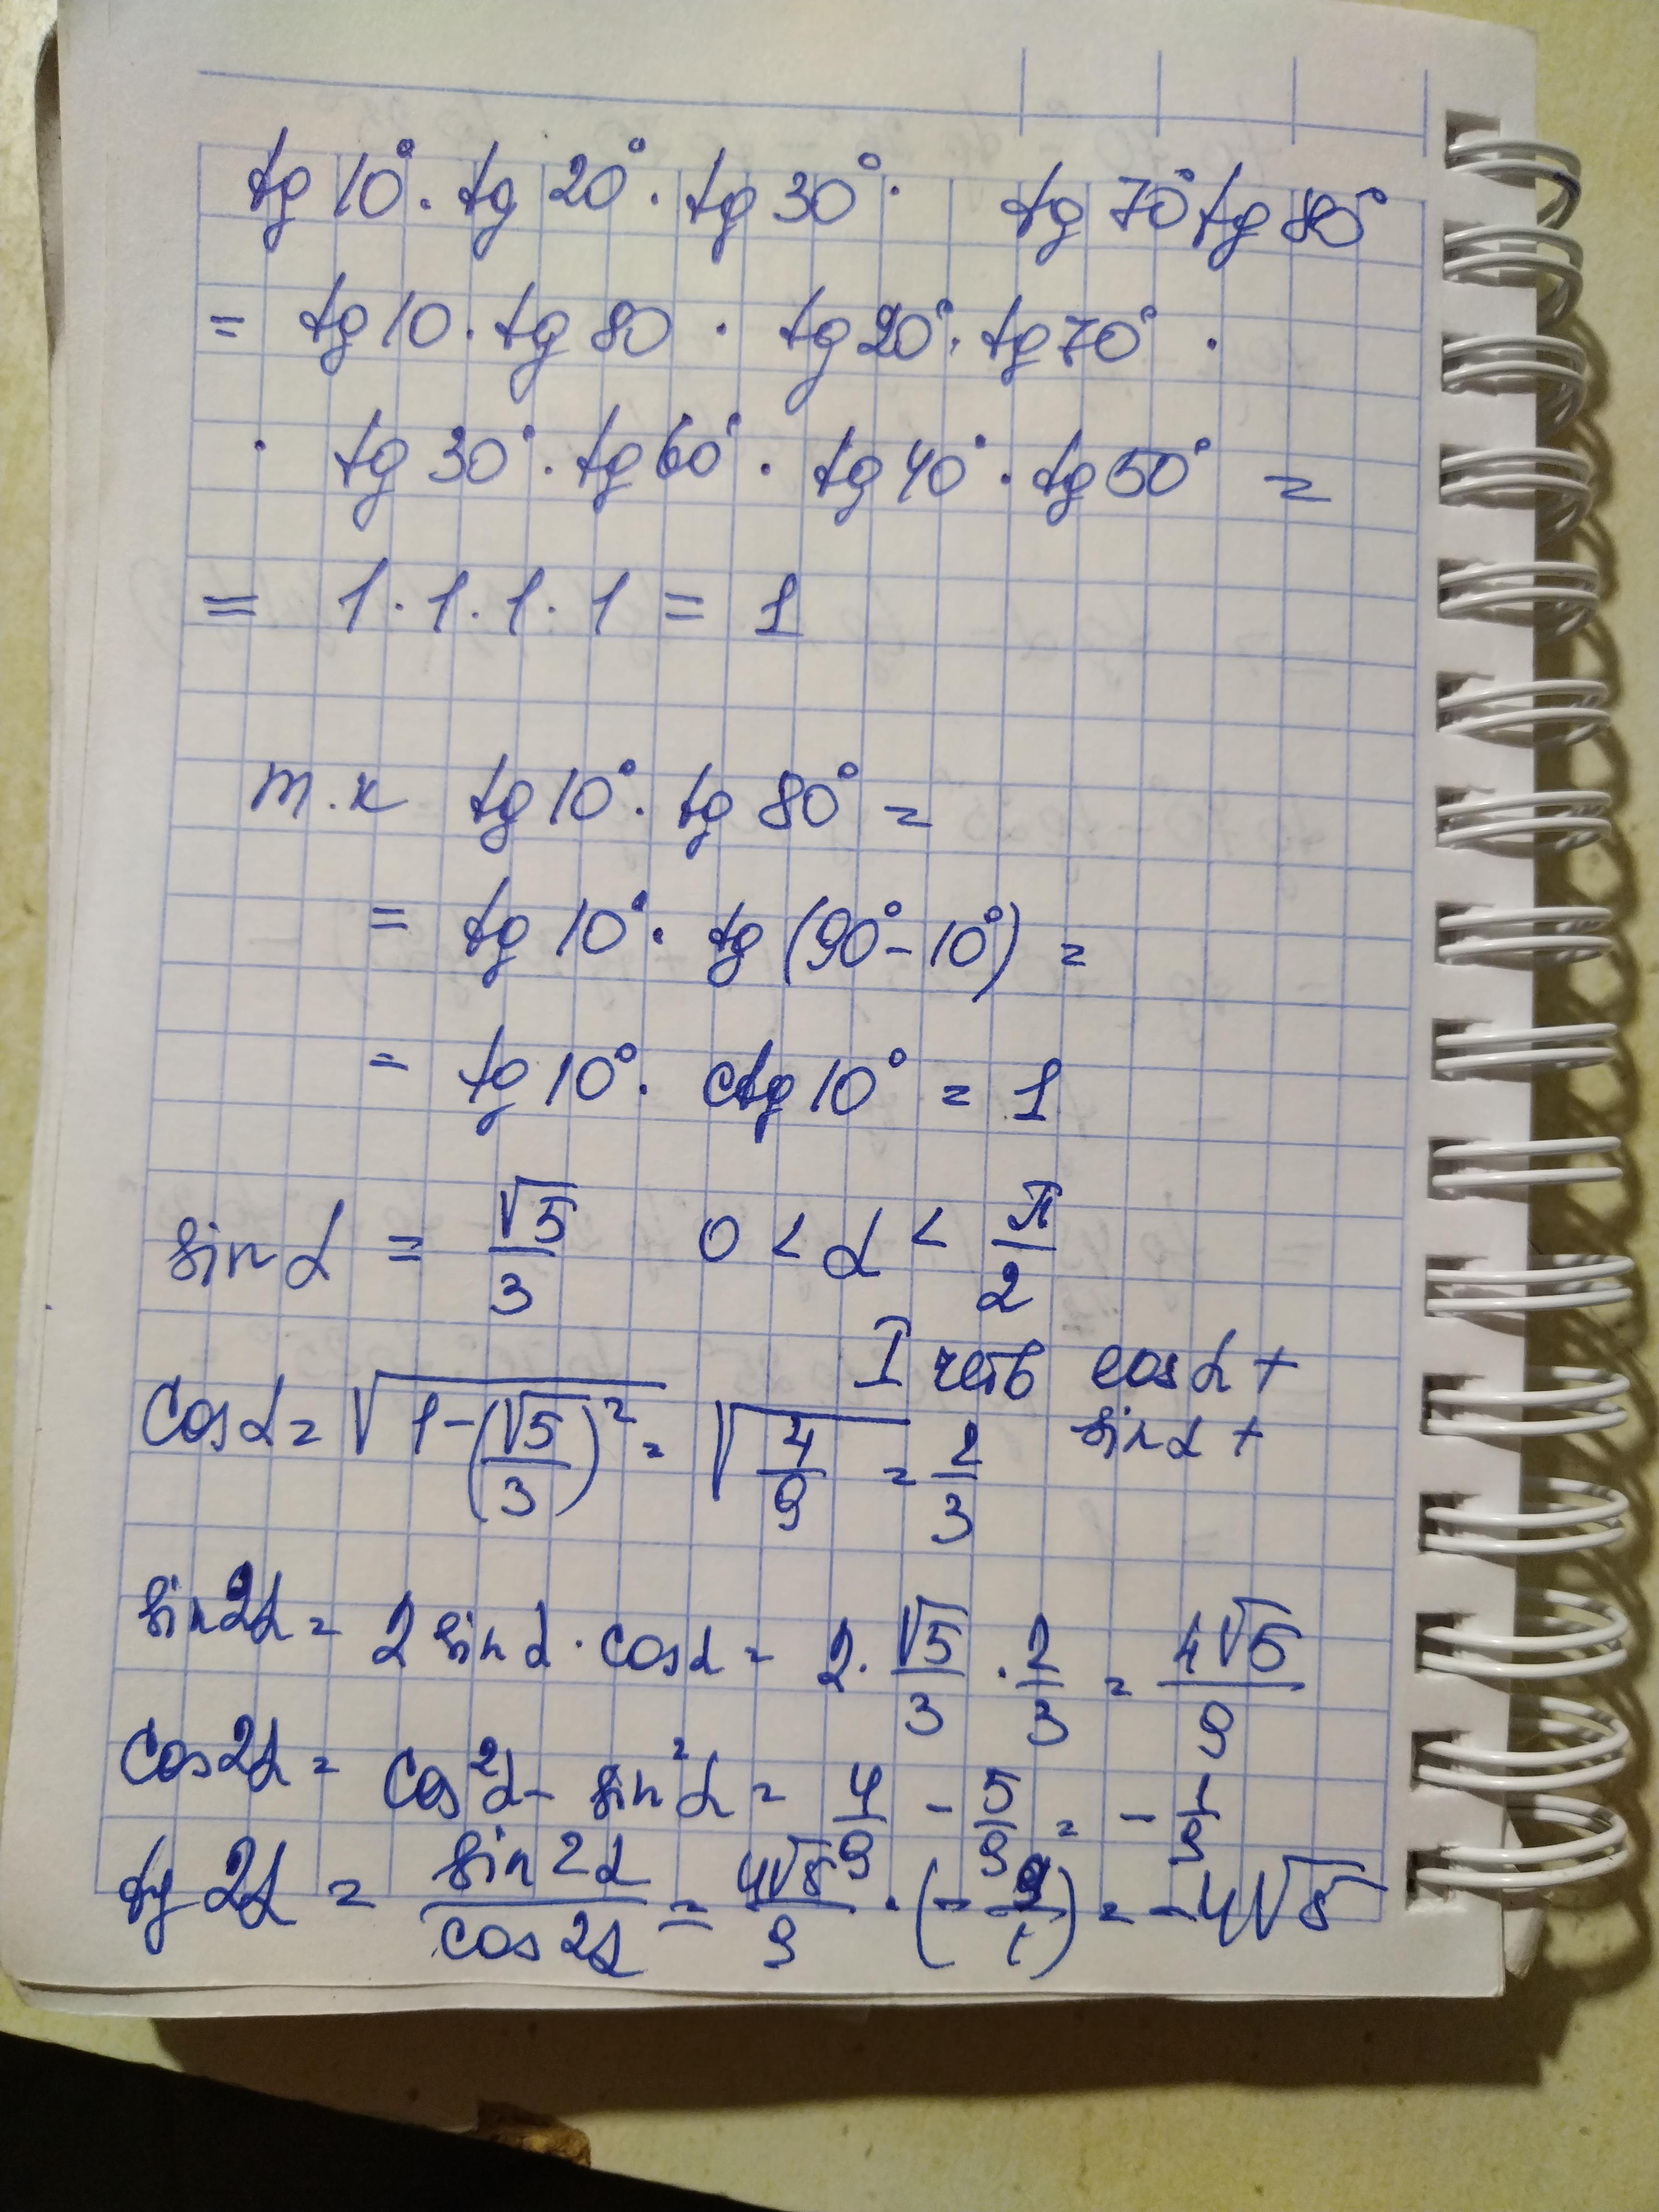 tg 10° · tg 20° · tg 30° · tg 70° tg 80°
= tg 10 · tg 80 · tg 20° · tg 70° ·
· tg 30° · tg 60° · tg 40° · tg 50° =
= 1 · 1 · 1 · 1 = 1
т.к tg 10° · tg 80° =
= tg 10° · tg (90° - 10°) =
= tg 10° · ctg 10° = 1
sin α = √5/3 0 < α < π/2
I четв cos α +
sin α +
cos α = √(1 - (√5/3)²) = √(4/9) = 2/3
sin 2α = 2 sin α · cos α = 2 · √5/3 · 2/3 = 4√5/9
cos 2α = cos²α - sin²α = 4/9 - 5/9 = - 1/9
tg 2α = sin 2α/cos 2α = 4√5/9 · (- 9/1) = - 4√5